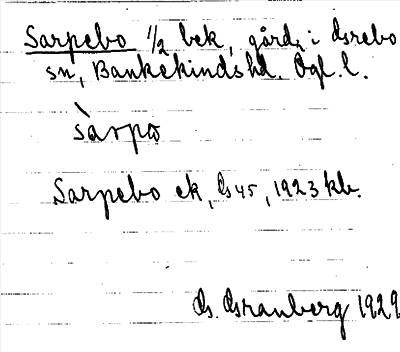 Sarpebo 1/2 bek, gård i Grebo
sn, Bankekindshd. Ögl. l.
sàrpo
Sarpebo ek, G 45, 1923 kb.
G. Granberg 1929